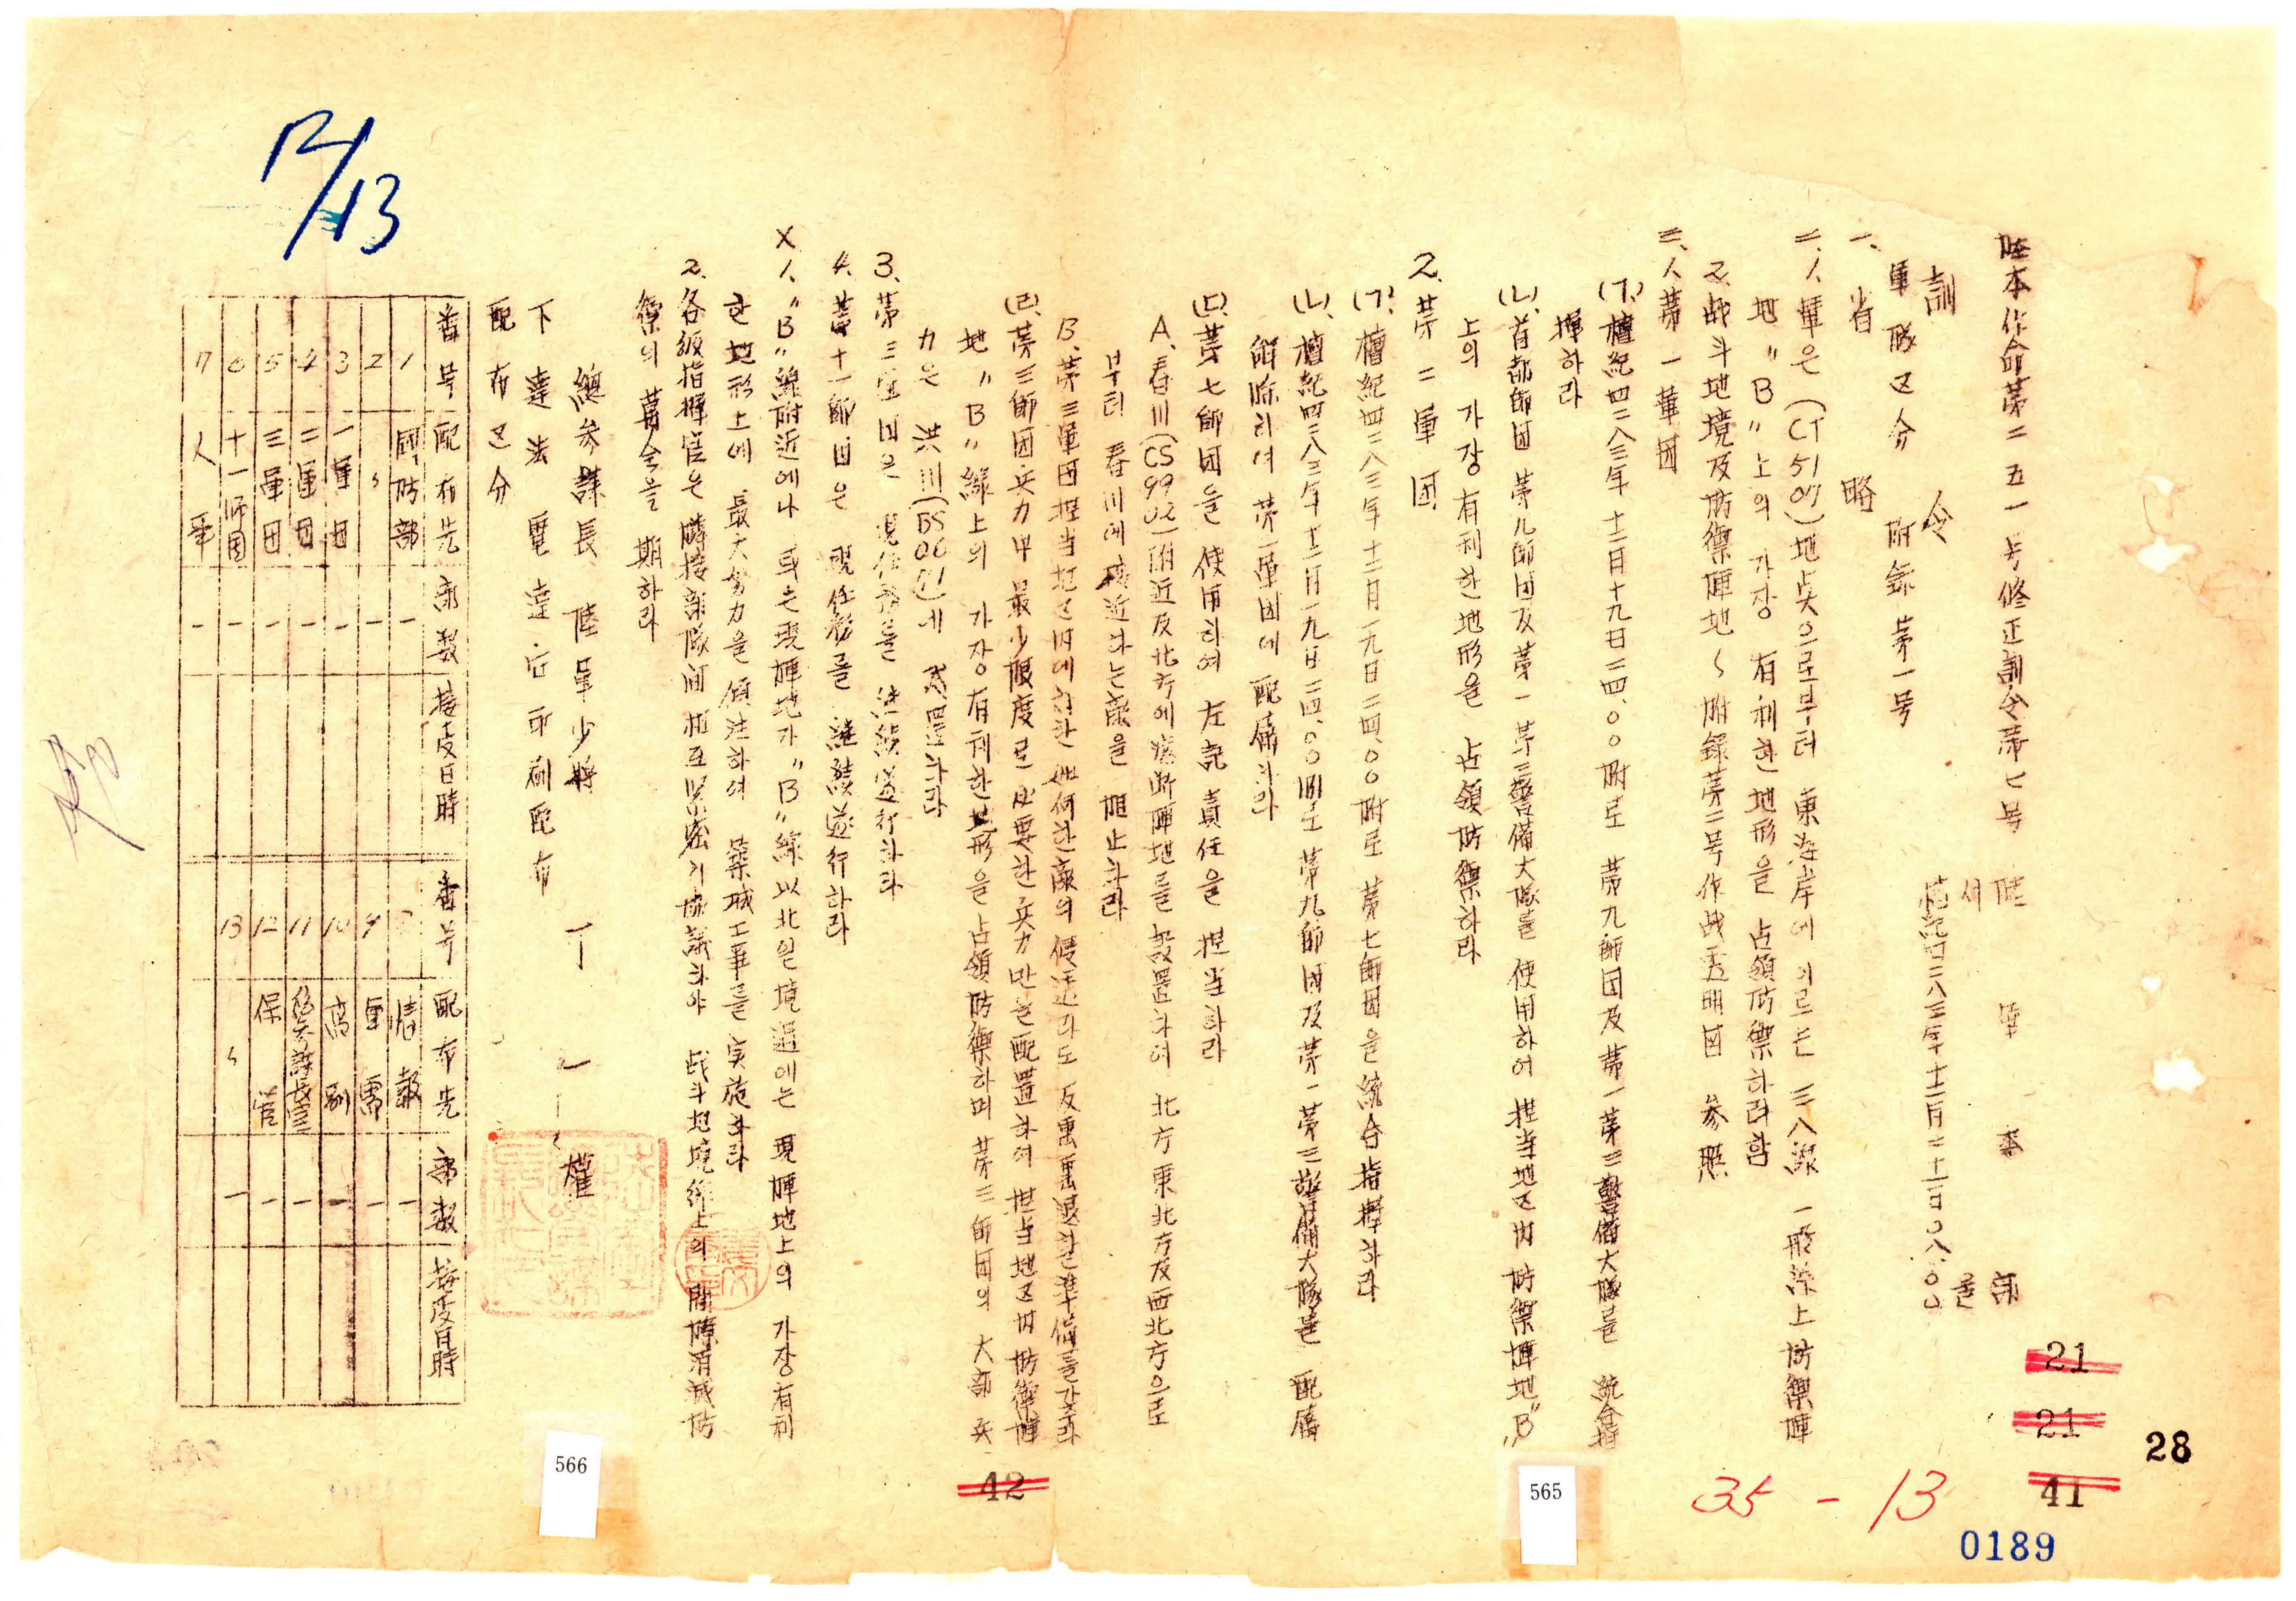 陸本作命第二五一号修正訓令第七号
陸軍本部
서울
檀紀四二八三年十二月二十二日〇八.〇〇
訓令
軍隊区分 附錄第一号
一. 省略
二. 1. 軍은 (CT5107)地点으로부터 東海岸에 이르는 三八線 一般線上 防禦陣
地 "B"上의 가장 有利한 地形을 占領防禦하려함
2. 战斗地境及防禦陣地 附録第二号作战透明図 参照
三. 1. 第一軍団
(ㄱ). 檀紀四二八三年十二月十九日二四.〇〇附로 第九師団及第一第三警備大隊를 統合指
揮하라
(ㄴ). 首都師団 第九師団及第一第三警備大隊를 使用하여 担当地区内 防禦陣地 "B"
上의 가장 有利한 地形을 占領防禦하라
2. 第二軍団
(ㄱ). 檀紀四二八三年十二月一九日二四.〇〇附로 第七師団을 統合指揮하라
(ㄴ). 檀紀四二八三年十二月一九日二四.〇〇附로 第九師団及第一第三警備大隊를 配属
解除하여 第一軍団에 配属하라
(ㄷ). 第七師団을 使用하여 左記 責任을 担当하라
A. 春川(CS9902)附近及北方에 遮断陣地를 設置하여 北方東北方及西北方으로
부터 春川에 接近하는 敵을 阻止하라
B. 第三軍団担当地区内에 如何한 敵의 侵透라도 反擊 擊退할 準備를 갖추라
(ㄹ). 第三師団兵力中 最少限度로 必要한 兵力만을 配置하여 担当地区内 防禦陣
地 "B"線上의 가장 有利한 地形을 占領防禦하며 第三師団의 大部 兵
力은 洪川(DS0671)에 位置하라
3. 第三軍団은 現任務를 継続遂行하라
4. 第十一師団은 現任務를 継続遂行하라
X 1. "B"線附近에나 或은 現陣地가 "B"線以北일 境遇에는 現陣地上의 가장 有利
한 地形上에 最大努力을 傾注하여 築城工事를 実施하라
2. 各級指揮官은 隣接部隊間 相互 緊密히 協議하야 战斗地境線上의 間隙消滅防
禦의 萬全을 期하라
總參謀長 陸軍少將 丁 一 權
下達法 電達后印刷配布
配布区分
番号 配布先 部数 接受日時 番号 配布先 部数 接受日時
1 國防部 1 8 情報 1
2 〃 1 9 軍需 1
3 一軍団 1 10 高副 1
4 二軍団 1 11 總參謀長室 1
5 三軍団 1 12 保管 1
6 十一师団 1 13 〃 1
7 人事 1
12/13
21
21
41
42
28
35-13
0189
565
566